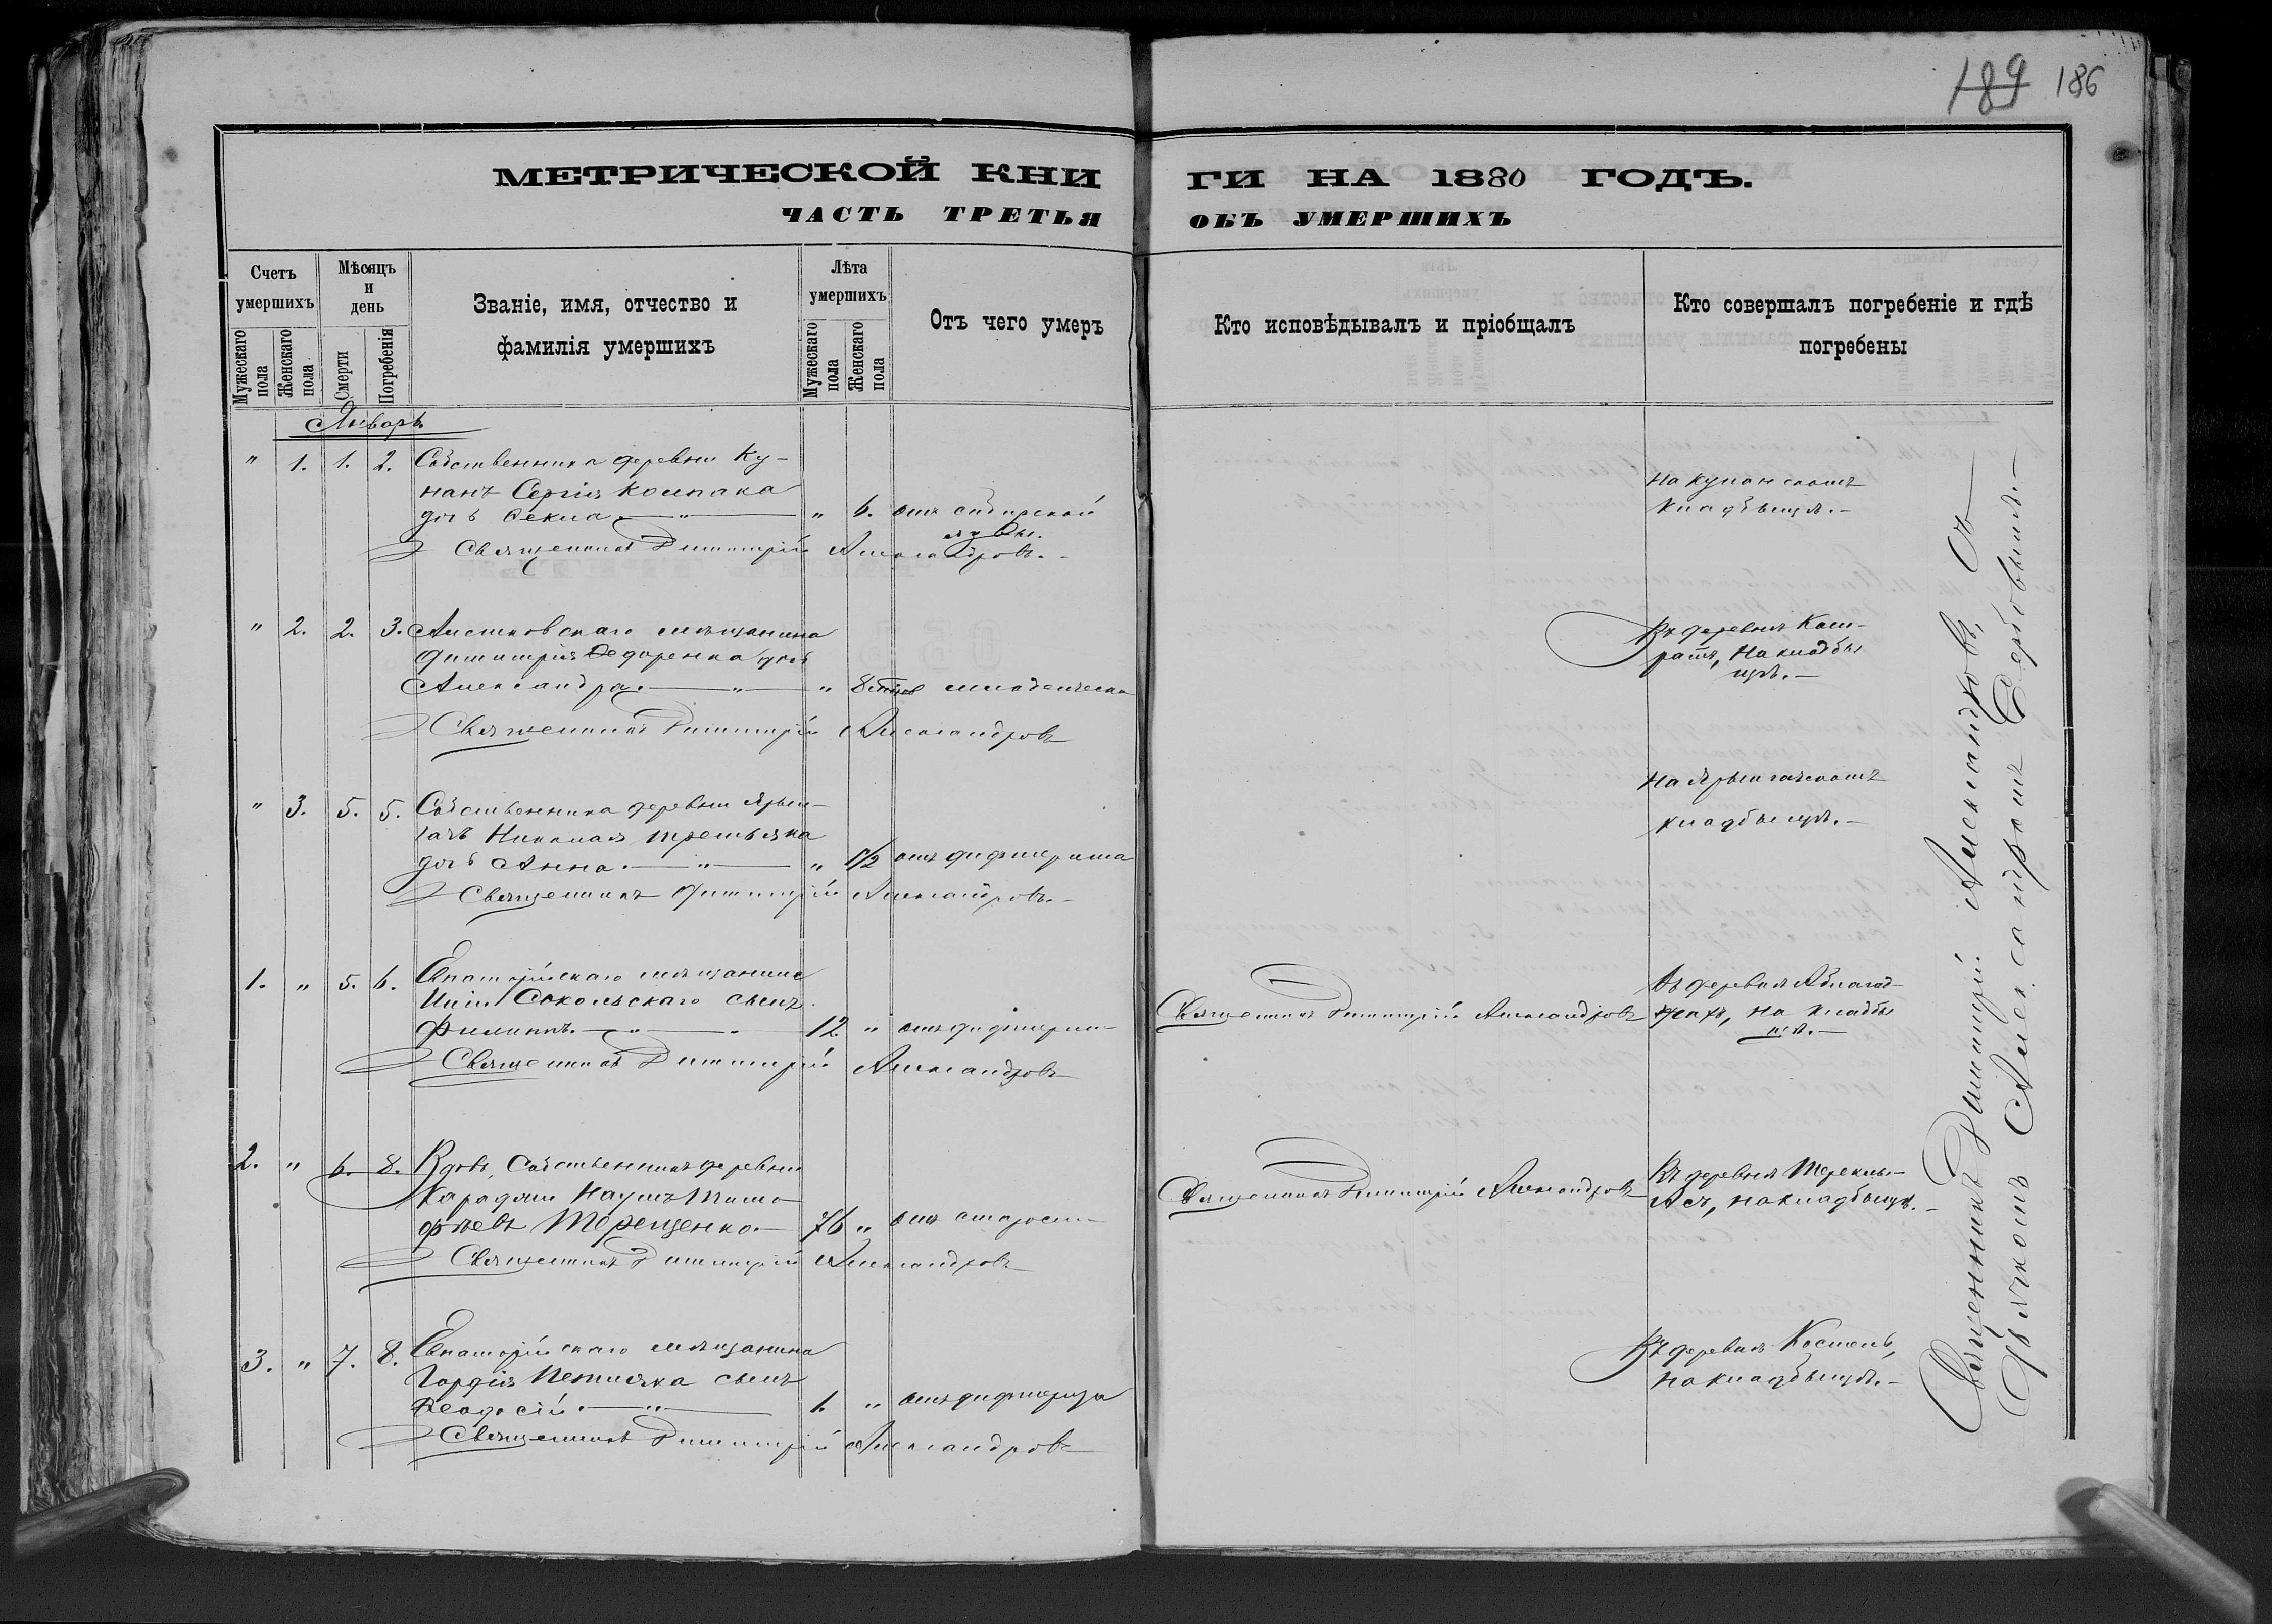 189 186
МЕТРИЧЕСКОЙ КНИ ГИ НА 1880 ГОДЪ.
ЧАСТЬ ТРЕТЬЯ ОБЪ УМЕРШИХЪ
Счетъ умершихъ
Мужескаго пола
Женскаго пола
Мѣсяцъ и день
Смерти
Погребенія
Званіе, имя, отчество и
фамилія умершихъ
Лѣта умершихъ
Мужескаго пола
Женскаго пола
Отъ чего умеръ
Кто исповѣдывалъ и пріобщалъ
Кто совершалъ погребеніе и гдѣ
погребены
Январь
" 1. 1. 2. Собственника деревни Ку-
нанъ Сергія Колпака
дочь Фекла. — " — " 6. отъ сибирской
язвы.
На кунанскомъ
кладбищѣ. –
Священникъ Димитрій Александровъ. –
" 2. 2. 3. мѣщанина
Димитрія Федоренка дочь
Александра. — " — " 8 младенческ
Въ деревнѣ
На кладби
щѣ. –
Священникъ Димитрій Александровъ
" 3. 5. 5. Собственника деревни
Николая Третьяка
дочь Анна. — " — " 1/2 отъ дифтерита
На
кладбищѣ. –
Священникъ Димитрій Александровъ. –
1. " 5. 6. Евпаторійскаго мѣщанина
Сокольскаго сынъ
Филиппъ. — " — 12. " отъ дифтерит
Священникъ Димитрій Александровъ
Въ деревнѣ
на кладби
щѣ. –
Священникъ Димитрій Александровъ
2. " 6. 8. Вдовъ, Собственникъ деревни
Наумъ Тимо
фѣевъ Терещенко. — 76 " отъ старости
Священникъ Димитрій Александровъ
Въ деревнѣ
на кладбищѣ. –
Священникъ Димитрій Александровъ
3. " 7. 8. Евпаторійскаго мѣщанина
Гордія сынъ
Феодосій. — " — 1. " отъ дифтерита
Въ деревнѣ
на кладбищѣ. –
Священникъ Димитрій Александровъ
Священникъ Димитрій Александровъ, Съ
Дьячкомъ Александромъ